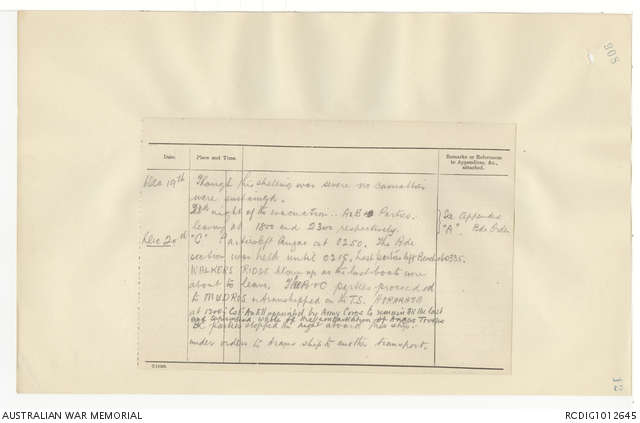 808
Date.
Place and Time.
Remarks or References
to Appendices, &c.,
attached.
Dec 19th Though the shelling was severe no casualties
were sustained.
2nd night of the evacuation. A & B Parties
leaving at 1800 and 2300 respectively.
See Appendix
"A". Bde Order
Dec 20th "C" Parties left Anzac at 0250. The Bde
section was held until 0215. Last parties left Beach at 0335.
WALKERS RIDGE blown up as the last boats were
about to leave. The parties proceeded
to MUDROS & transhipped on the T.S.
at 1200. Col. appointed by Army Corps to remain till the last
and of the embarkation of Anzac Troops
parties stopped the night aboard this ship
under orders to trans ship to another transport.
12
AUSTRALIAN WAR MEMORIAL
RCDIG1012645